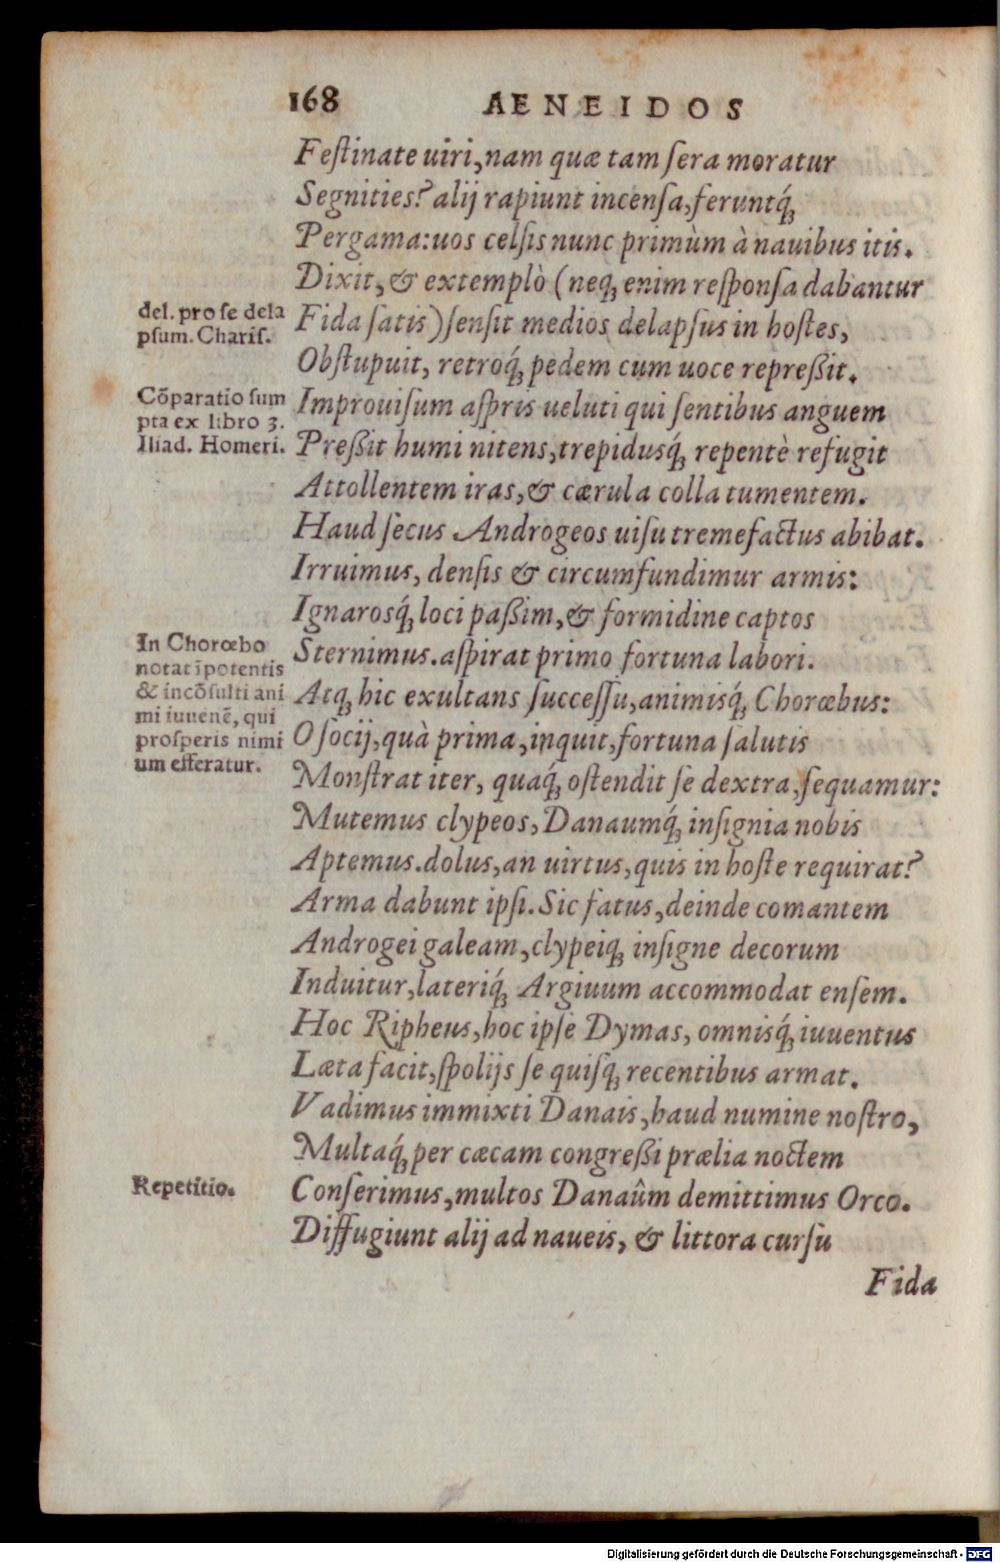 168 AENEIDOS
Festinate uiri, nam quæ tam sera moratur
Segnities? alij rapiunt incensa, feruntq́;
Pergama: uos celsis nunc primùm à nauibus itis.
Dixit, & extemplò (neq; enim responsa dabantur
del. pro se dela
psum. Charis.
Fida satis) sensit medios delapsus in hostes,
Obstupuit, retroq́; pedem cum uoce repreßit.
Cõparatio sum
pta ex libro 3.
Iliad. Homeri.
Improuisum aspris ueluti qui sentibus anguem
Preßit humi nitens, trepidusq́; repentè refugit
Attollentem iras, & cærula colla tumentem.
Haud secus Androgeos uisu tremefactus abibat.
Irruimus, densis & circumfundimur armis:
Ignarosq́; loci paßim, & formidine captos
In Chorœbo
notat ĩpotentis
& incõsulti ani
mi iuuenẽ, qui
prosperis nimi
um efferatur.
Sternimus. aspirat primo fortuna labori.
Atq; hic exultans successu, animisq́; Chorœbus:
O socij, quà prima, inquit, fortuna salutis
Monstrat iter, quaq́; ostendit se dextra, sequamur:
Mutemus clypeos, Danaumq́; insignia nobis
Aptemus. dolus, an uirtus, quis in hoste requirat?
Arma dabunt ipsi. Sic fatus, deinde comantem
Androgei galeam, clypeiq; insigne decorum
Induitur, lateriq́; Argiuum accommodat ensem.
Hoc Ripheus, hoc ipse Dymas, omnisq́; iuuentus
Læta facit, spolijs se quisq; recentibus armat.
Vadimus immixti Danais, haud numine nostro,
Multaq́; per cæcam congreßi prælia noctem
Repetitio.
Conserimus, multos Danaûm demittimus Orco.
Diffugiunt alij ad naueis, & littora cursu
Fida
Digitalisierung gefördert durch die Deutsche Forschungsgemeinschaft - DFG